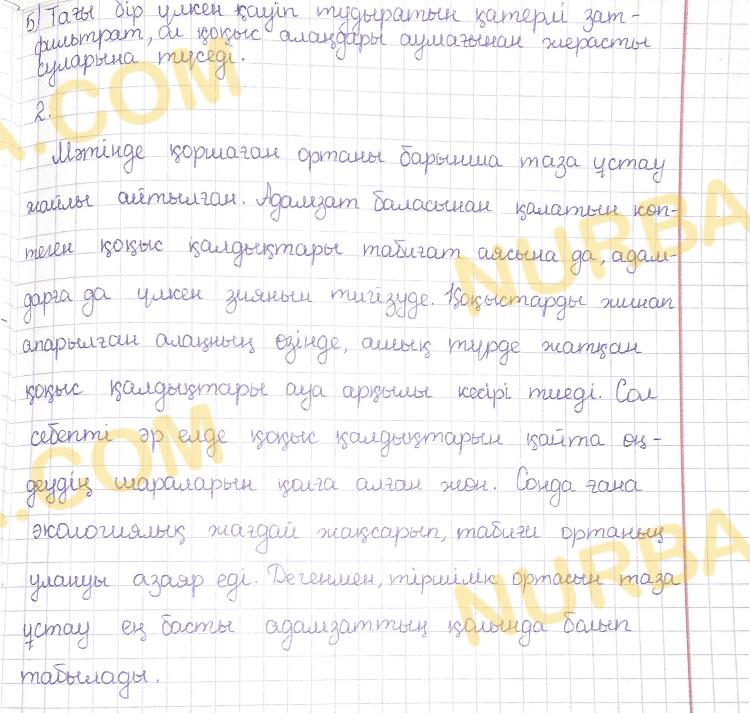 5) Тағы бір үлкен қауіп тудыратын қатерлі зат-
фильтрат, ол қоқыс алаңдары аумағынан жерасты
суларына түседі.
2.
Мәтінде қоршаған ортаны барынша таза ұстау
жайлы айтылған. Адамзат баласынан қалатын көп-
теген қоқыс қалдықтары табиғат аясына да, адам-
дарға да үлкен зиянын тигізуде. Қоқыстарды жинап
апарылған алаңның өзінде, ашық түрде жатқан
қоқыс қалдықтары ауа арқылы кесірі тиеді. Сол
себепті әр елде қоқыс қалдықтарын қайта өң-
деудің шараларын қолға алған жөн. Сонда ғана
экологиялық жағдай жақсарып, табиғи ортаның
улануы азаяр еді. Дегенмен, тіршілік ортасын таза
ұстау ең басты адамзаттың қолында болып
табылады.
A.COM
NURBA
A.COM
NURBA